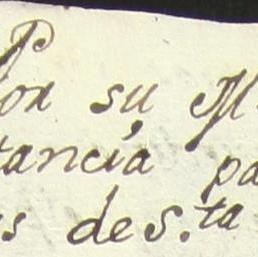 Por su M
tancia pa
s de S.ta